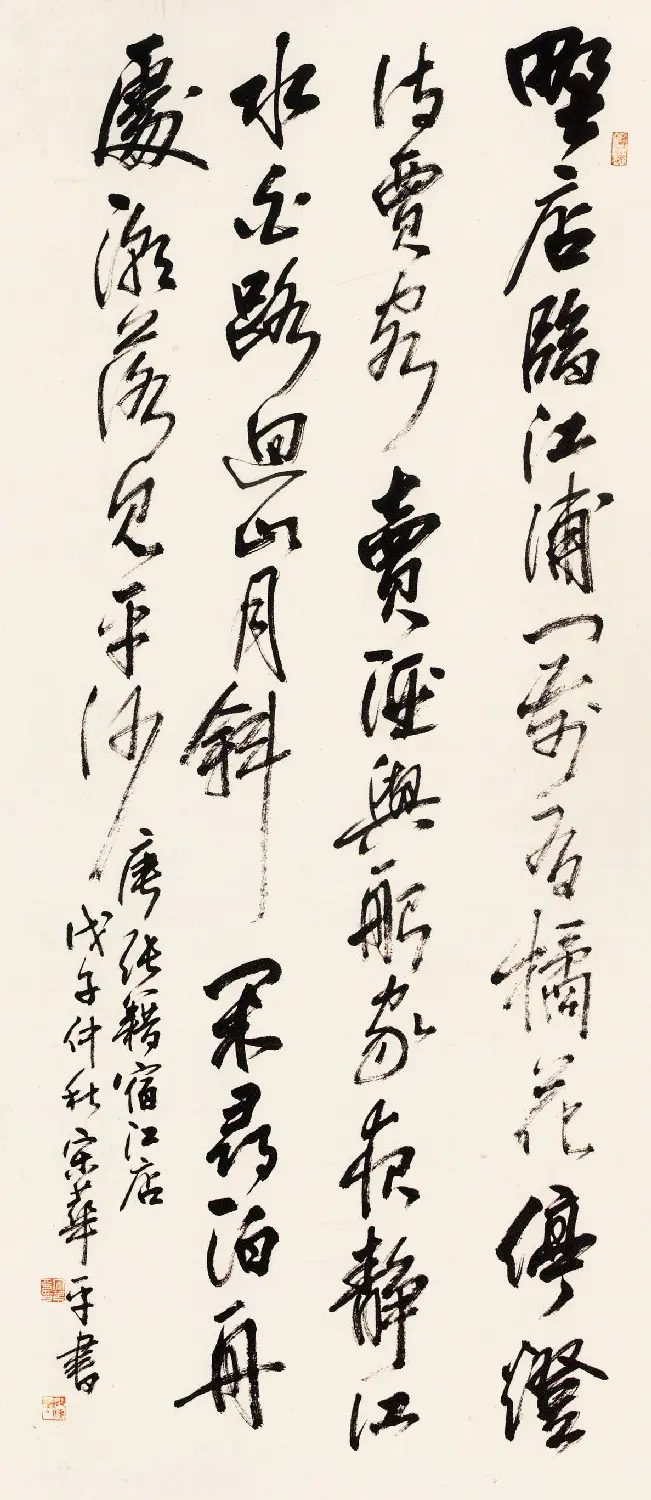 野店臨江浦門前有橘花停燈
待賈客賣酒與船家夜靜江
水白路迴山月斜閑尋泊舟
處潮落見平沙
唐張籍宿江店
戊子仲秋宋華平書